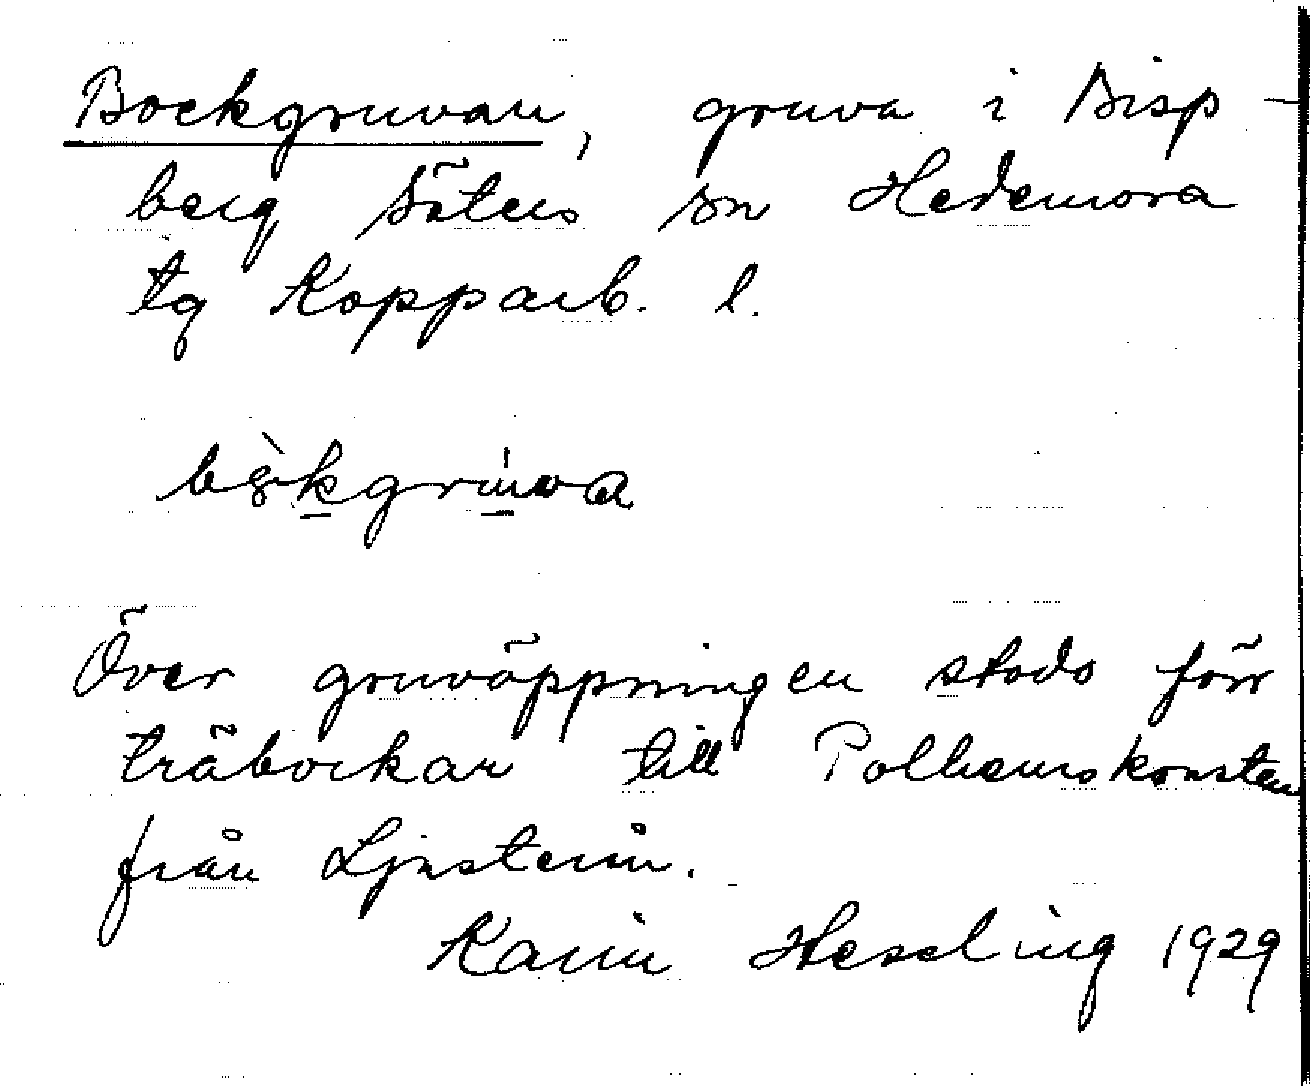 Bockgruvan, gruva i Bisp-
berg Säters sn Hedemora
tg Kopparb. l.
bòkgrúva
Över gruvöppningen stodo förr
träbockar till Polhemskonsten
från Ljustern.
Karin Hessling 1929